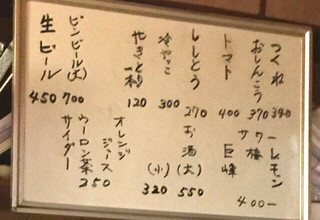 つくね 390
おしんこう 370
トマト 400
ししとう 270
冷やっこ 300
やきとり一本 120
ビンビール(大) 700
生ビール 450
レモン
サワー 梅
巨峰
400-
お酒(大) 550
(小) 320
オレンジ
ジュース
ウーロン茶
サイダー
250